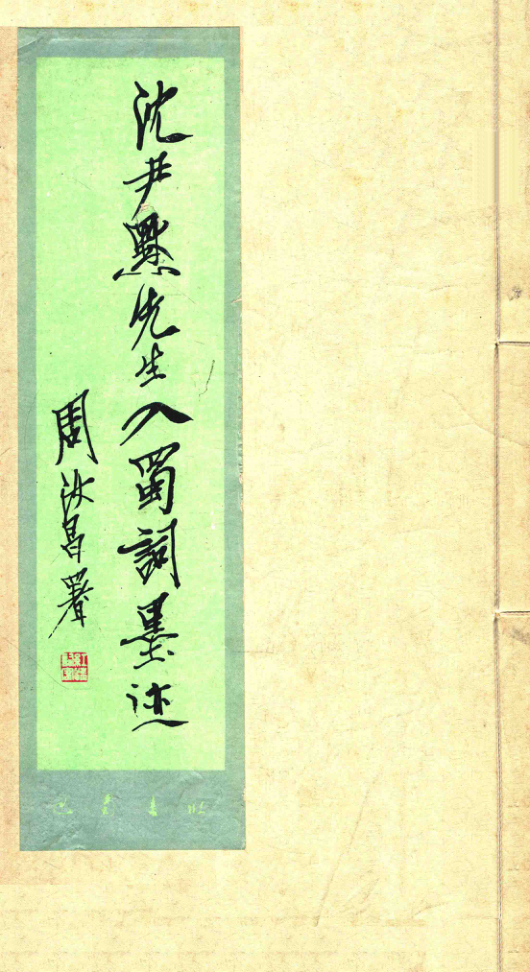 沈尹默先生入蜀詞墨迹
周汝昌署